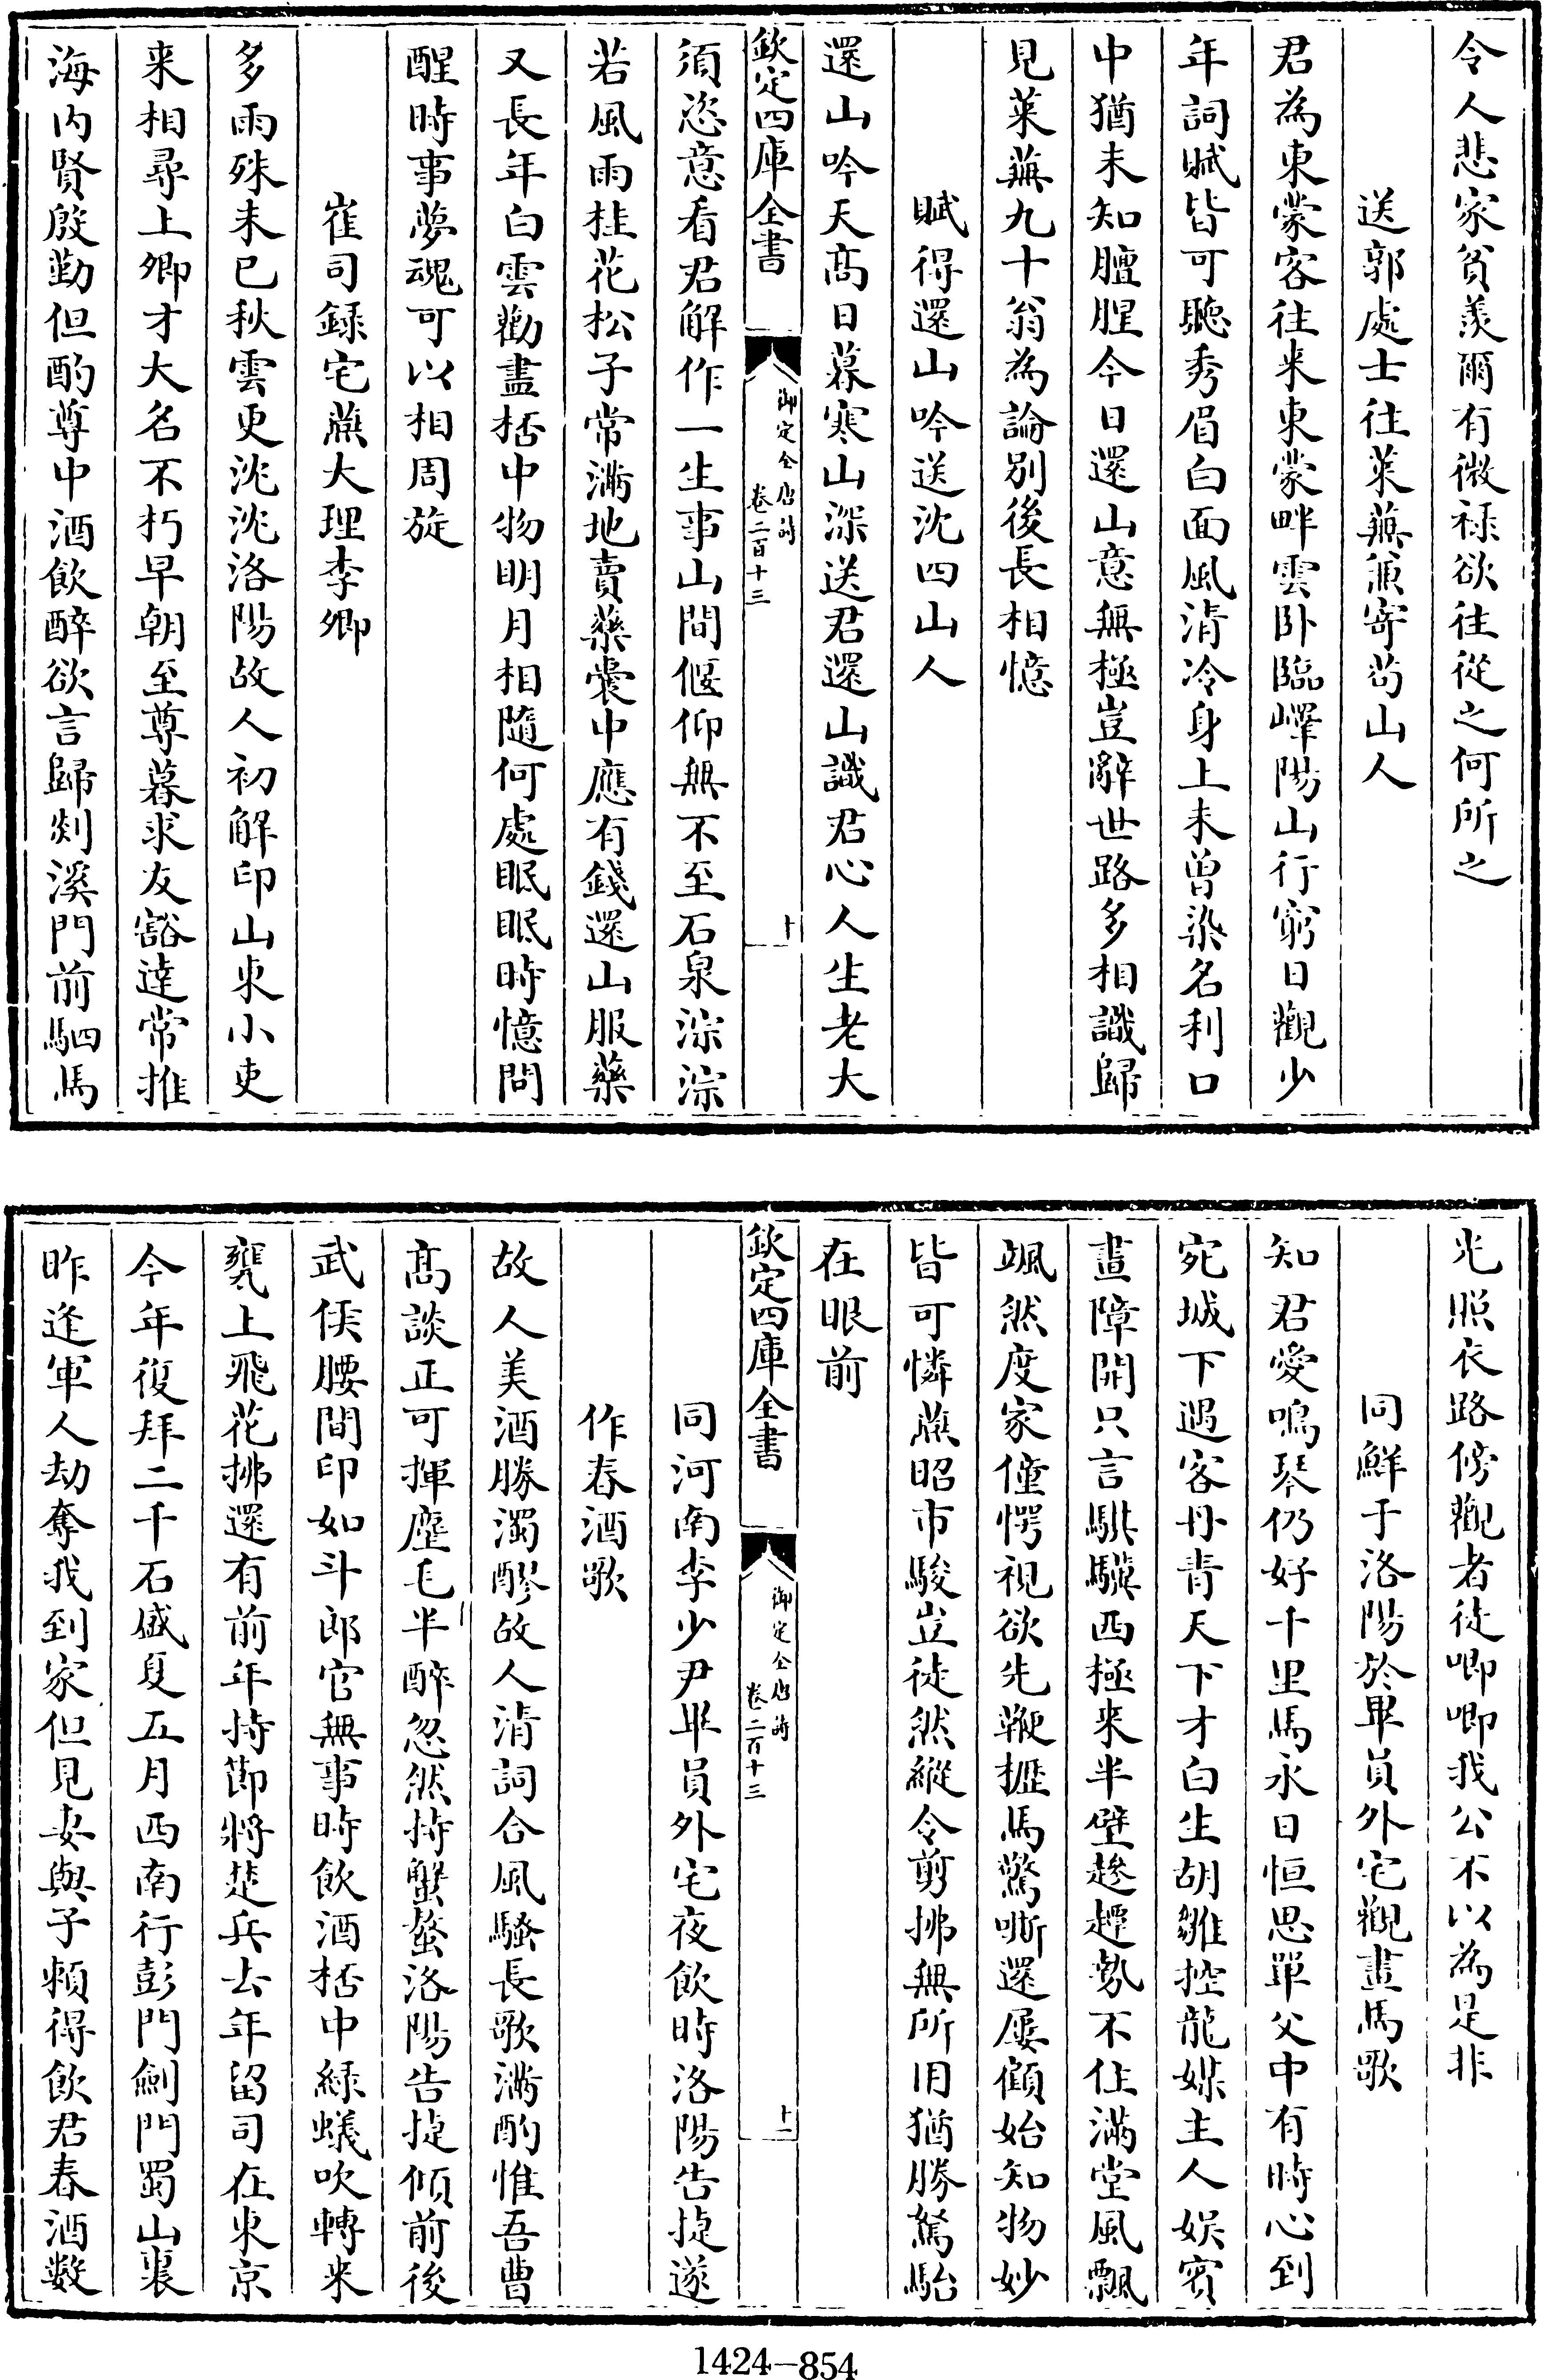 令人悲家貧羨爾有微祿欲往從之何所之
送郭處士往萊蕪兼寄苟山人
君為東蒙客往来東蒙畔雲卧臨嶧陽山行窮日觀少
年詞賦皆可聽秀眉白面風清冷身上未曾染名利口
中猶未知膻腥今日還山意無極豈辭世路多相識歸
見萊蕪九十翁為論别後長相憶
賦得還山吟送沈四山人
還山吟天髙日暮寒山深送君還山識君心人生老大
欽定四庫全書
御定全唐詩
卷二百十三
十
須恣意看君解作一生事山間偃仰無不至石泉淙淙
若風雨桂花松子常滿地賣藥囊中應有錢還山服藥
又長年白雲勸盡桮中物明月相隨何處眠眠時憶問
醒時事夢魂可以相周旋
崔司録宅燕大理李卿
多雨殊未已秋雲更沈沈洛陽故人初解印山東小吏
来相尋上卿才大名不朽早朝至尊暮求友豁達常推
海内賢殷勤但酌尊中酒飲醉欲言歸剡溪門前駟馬
光照衣路傍觀者徒唧唧我公不以為是非
同鮮于洛陽於畢員外宅觀畫馬歌
知君愛鳴琴仍好千里馬永日恒思單父中有時心到
宛城下遇客丹青天下才白生胡雛控龍媒主人娱賓
畫障開只言騏驥西極来半壁趁䟢勢不住滿堂風飄
颯然度家僮愕視欲先鞭櫪馬驚嘶還屢顧始知物妙
皆可憐燕昭市駿豈徒然縱令剪拂無所用猶勝駑駘
在眼前
欽定四庫全書
御定全唐詩
卷二百十三
十一
同河南李少尹畢員外宅夜飲時洛陽告捷遂
作春酒歌
故人美酒勝濁醪故人清詞合風騷長歌滿酌惟吾曹
髙談正可揮麈毛半醉忽然持蟹螯洛陽告捷傾前後
武侯腰間印如斗郎官無事時飲酒桮中緑蟻吹轉来
甕上飛花拂還有前年持節將楚兵去年留司在東京
今年復拜二千石盛夏五月西南行彭門劍門蜀山裏
昨逢軍人劫奪我到家但見妻與子頼得飲君春酒數
1424—854